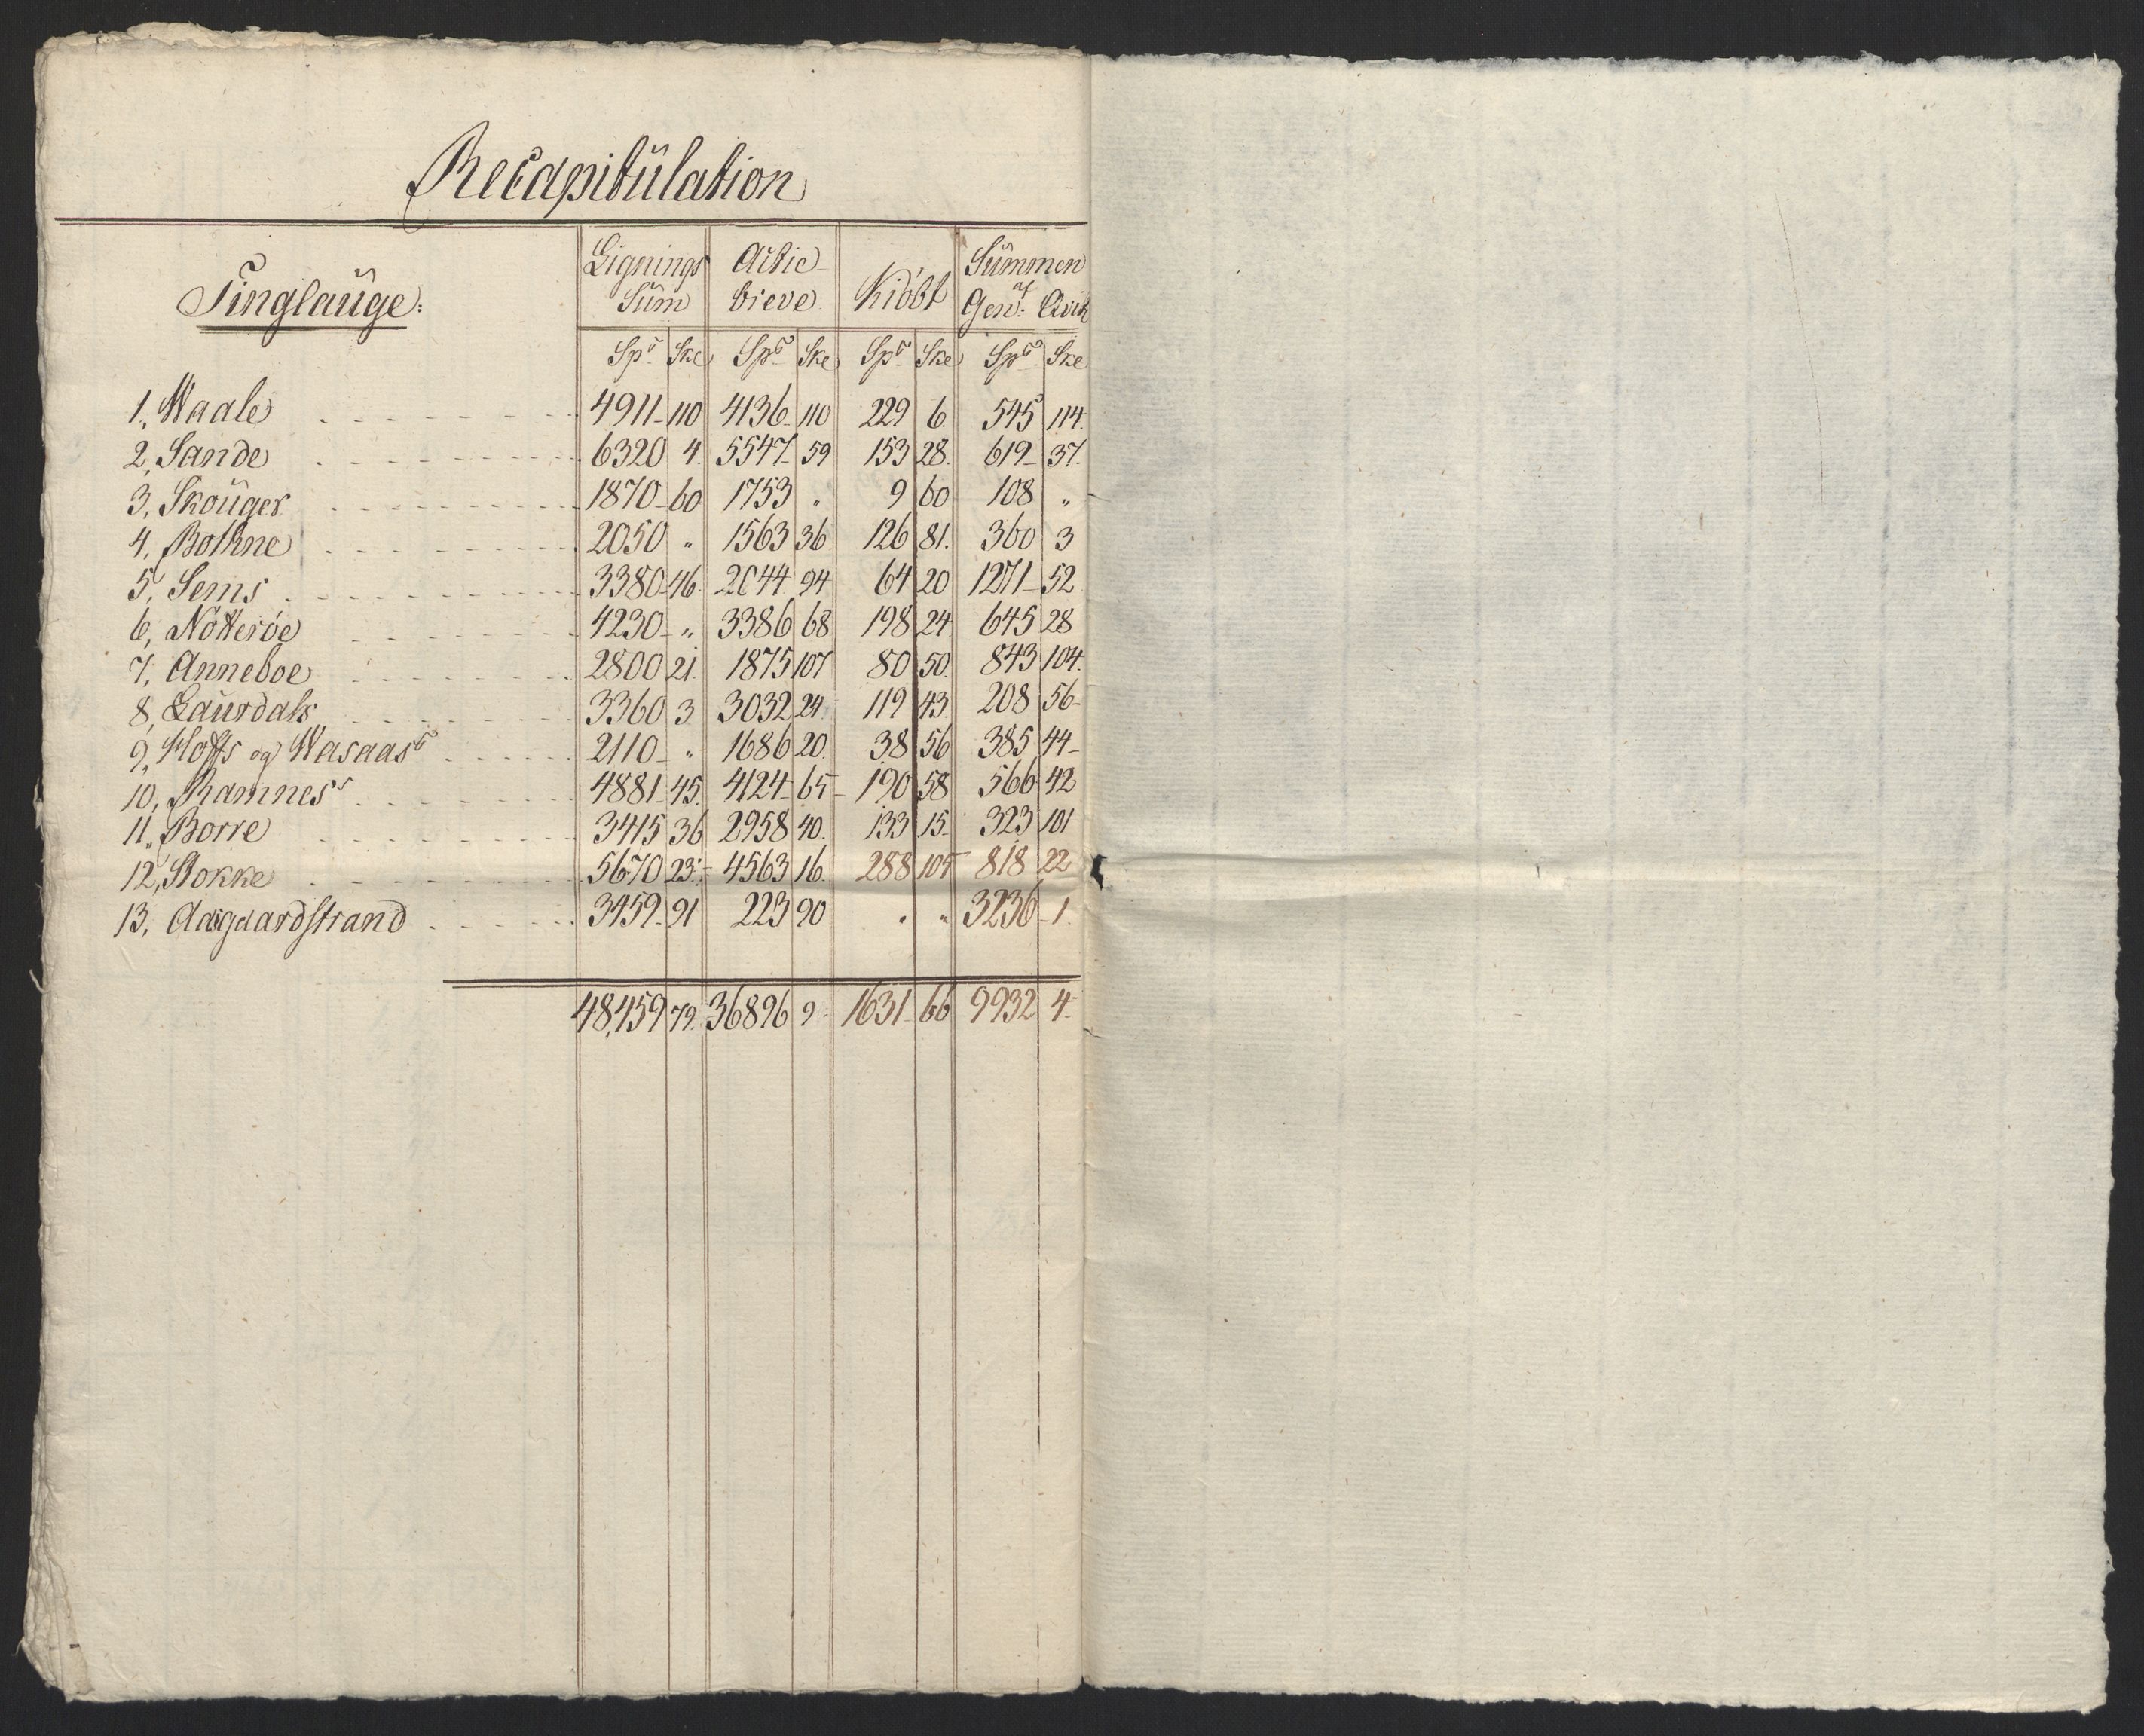 Recapitulation
Tinglauge:
Lignings Sum | Actie breve | Kiöbt | Summen af Gen: Qvit
Spd | Sk | Spd | Sk | Spd | Sk | Spd | Sk
1, Waale 4911 110 4136 110 229 6 545 114
2, Sande 6320 4 5547 59 153 28 619 37
3, Skouger 1870 60 1753 " 9 60 108 "
4, Bothne 2050 " 1563 36 126 81 360 3
5, Sems 3380 46 2044 94 64 20 1271 52
6, Nötteröe 4230 " 3386 68 198 24 645 28
7, Anneboe 2800 21 1875 107 80 50 843 104
8, Laurdals 3360 3 3032 24 119 43 208 56
9, Hoffs og Wasaas 2110 " 1686 20 38 56 385 44
10, Ramnes 4881 45 4124 65 190 58 566 42
11, Borre 3415 36 2958 40 133 15 323 101
12, Stokke 5670 23 4563 16 288 105 818 22
13, Aasgaardstrand 3459 91 223 90 " " 3236 1
48,459 79 36896 9 1631 66 9932 4